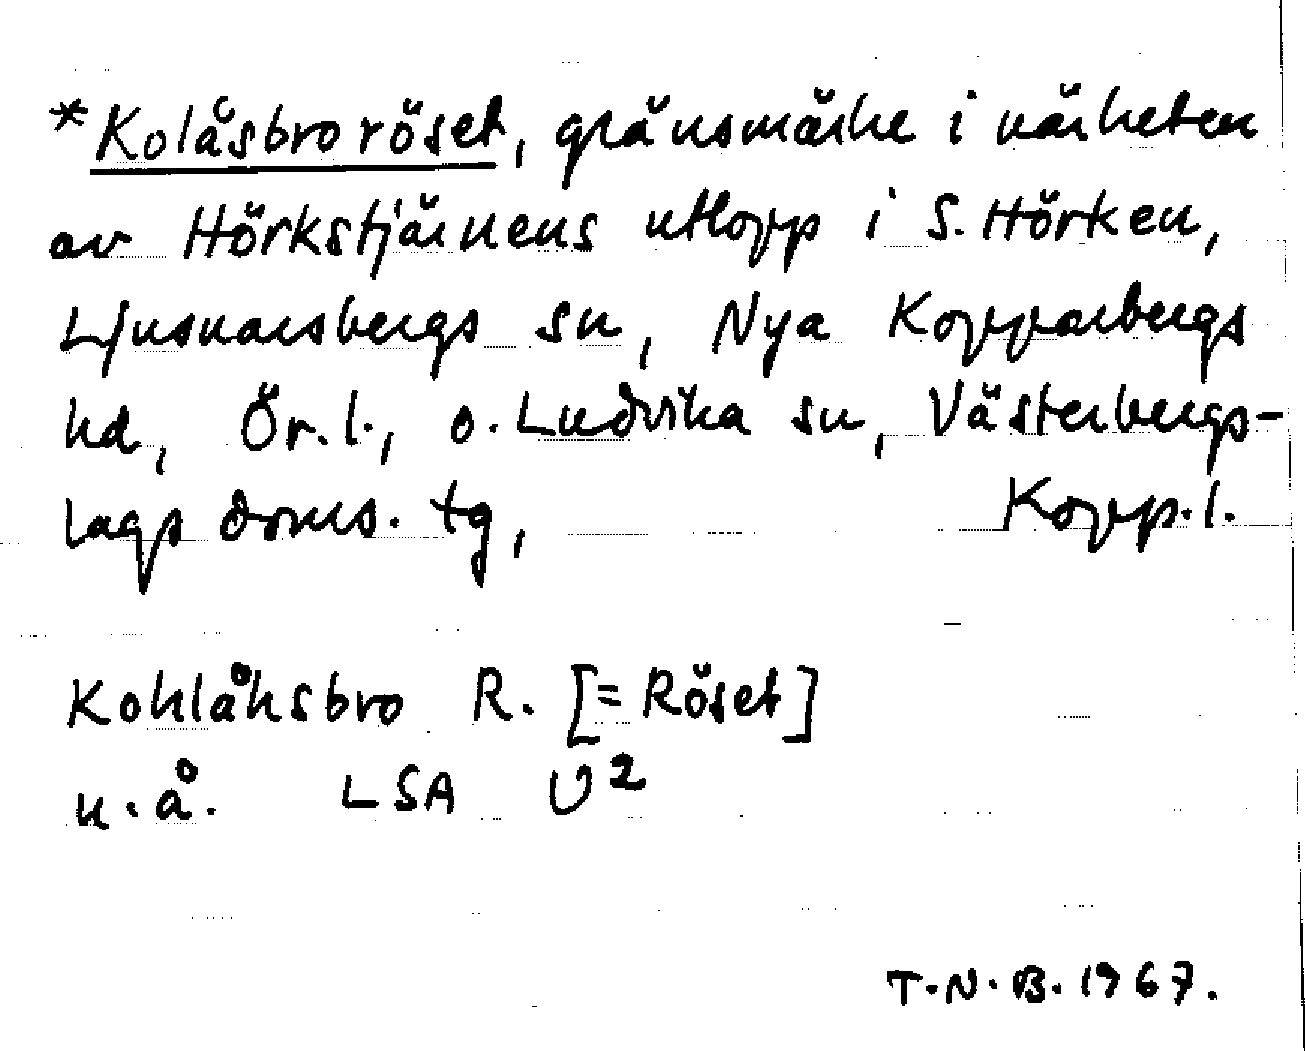 *Kolåsbroröset, gränsmärke i närheten
av Hörkstjärnens utlopp i S. Hörken,
Ljusnarsbergs sn, Nya Kopparbergs
hd, Ör. l., o. Ludvika sn, Västerbergs-
lags doms. tg, Kopp. l.
Kohlåhsbro R. [= Röset]
u. å. LSA U²
T.N.B. 1967.